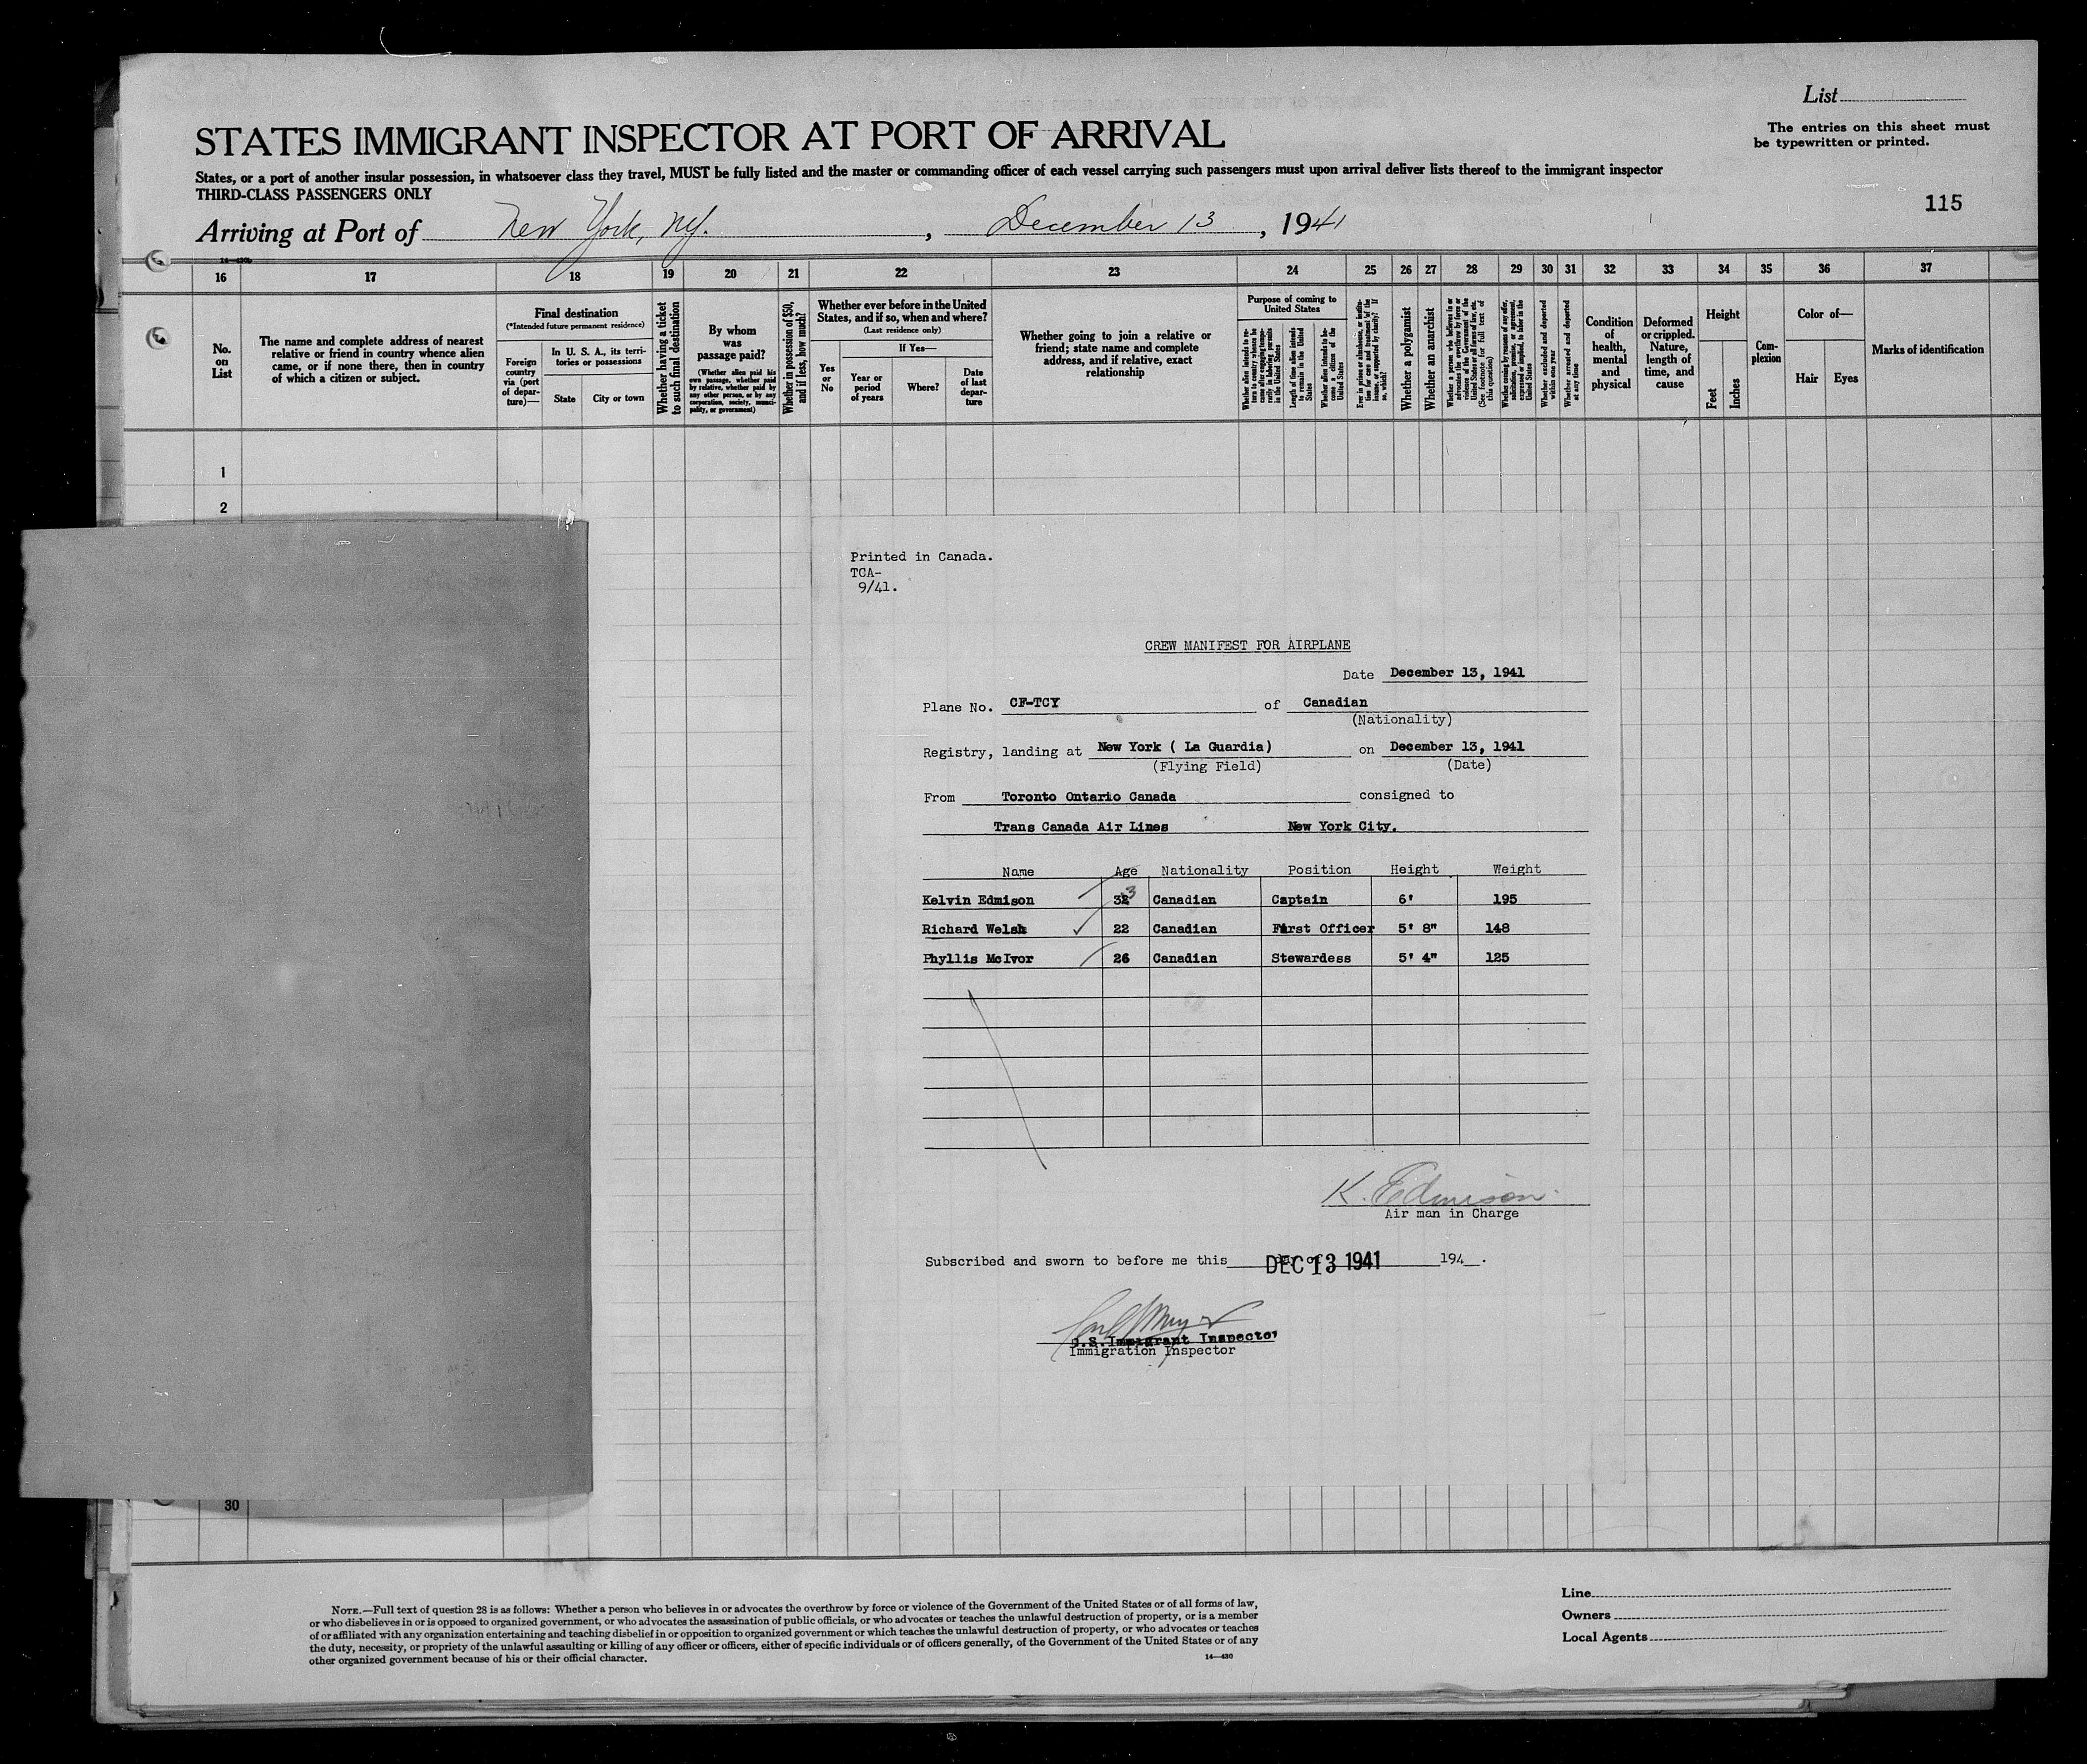 List
STATES IMMIGRANT INSPECTOR AT PORT OF ARRIVAL
The entries on this sheet must
be typewritten or printed.
States, or a port of another insular possession, in whatsoever class they travel, MUST be fully listed and the master or commanding officer of each vessel carrying such passengers must upon arrival deliver lists thereof to the immigrant inspector
THIRD-CLASS PASSENGERS ONLY
115
Arriving at Port of New York, NY. , December 13 , 1941
16 17 18 19 20 21 22 23 24 25 26 27 28 29 30 31 32 33 34 35 36 37
No.
on
List
The name and complete address of nearest
relative or friend in country whence alien
came, or if none there, then in country
of which a citizen or subject.
Final destination
(*Intended future permanent residence)
Foreign
country
via (port
of depar-
ture)—
In U. S. A., its terri-
tories or possessions
State
City or town
Whether having a ticket
to such final destination
By whom
was
passage paid?
(Whether alien paid his
own passage, whether paid
by relative, whether paid by
any other person, or by any
corporation, society, munici-
pality, or government)
Whether in possession of $50,
and if less, how much?
Whether ever before in the United
States, and if so, when and where?
(Last residence only)
Yes
or
No
If Yes—
Year or
period
of years
Where?
Date
of last
depar-
ture
Whether going to join a relative or
friend; state name and complete
address, and if relative, exact
relationship
Purpose of coming to
United States
Length of time alien intends
to remain in the United
States
Whether alien intends to be-
come a citizen of the
United States
Whether a polygamist
Whether an anarchist
(See footnote for full text of
this question)
Whether excluded and deported
within one year
Whether arrested and deported
at any time
Condition
of
health,
mental
and
physical
Deformed
or crippled.
Nature,
length of
time, and
cause
Height
Feet
Inches
Com-
plexion
Color of—
Hair
Eyes
Marks of identification
1
2
30
Printed in Canada.
TCA-
9/41.
CREW MANIFEST FOR AIRPLANE
Date December 13, 1941
Plane No. CF-TCY of Canadian
(Nationality)
Registry, landing at New York ( La Guardia) on December 13, 1941
(Flying Field) (Date)
From Toronto Ontario Canada consigned to
Trans Canada Air Lines New York City.
Name Age Nationality Position Height Weight
Kelvin Edmison 33 Canadian Captain 6' 195
Richard Welsh 22 Canadian First Officer 5' 8" 148
Phyllis McIvor 26 Canadian Stewardess 5' 4" 125
K. Edmison.
Air man in Charge
Subscribed and sworn to before me this DEC 13 1941 194 .
U.S. Immigrant Inspector
Immigration Inspector
NOTE.—Full text of question 28 is as follows: Whether a person who believes in or advocates the overthrow by force or violence of the Government of the United States or of all forms of law,
or who disbelieves in or is opposed to organized government, or who advocates the assassination of public officials, or who advocates or teaches the unlawful destruction of property, or is a member
of or affiliated with any organization entertaining and teaching disbelief in or opposition to organized government or which teaches the unlawful destruction of property, or who advocates or teaches
the duty, necessity, or propriety of the unlawful assaulting or killing of any officer or officers, either of specific individuals or of officers generally, of the Government of the United States or of any
other organized government because of his or their official character.
14—430
Line
Owners
Local Agents